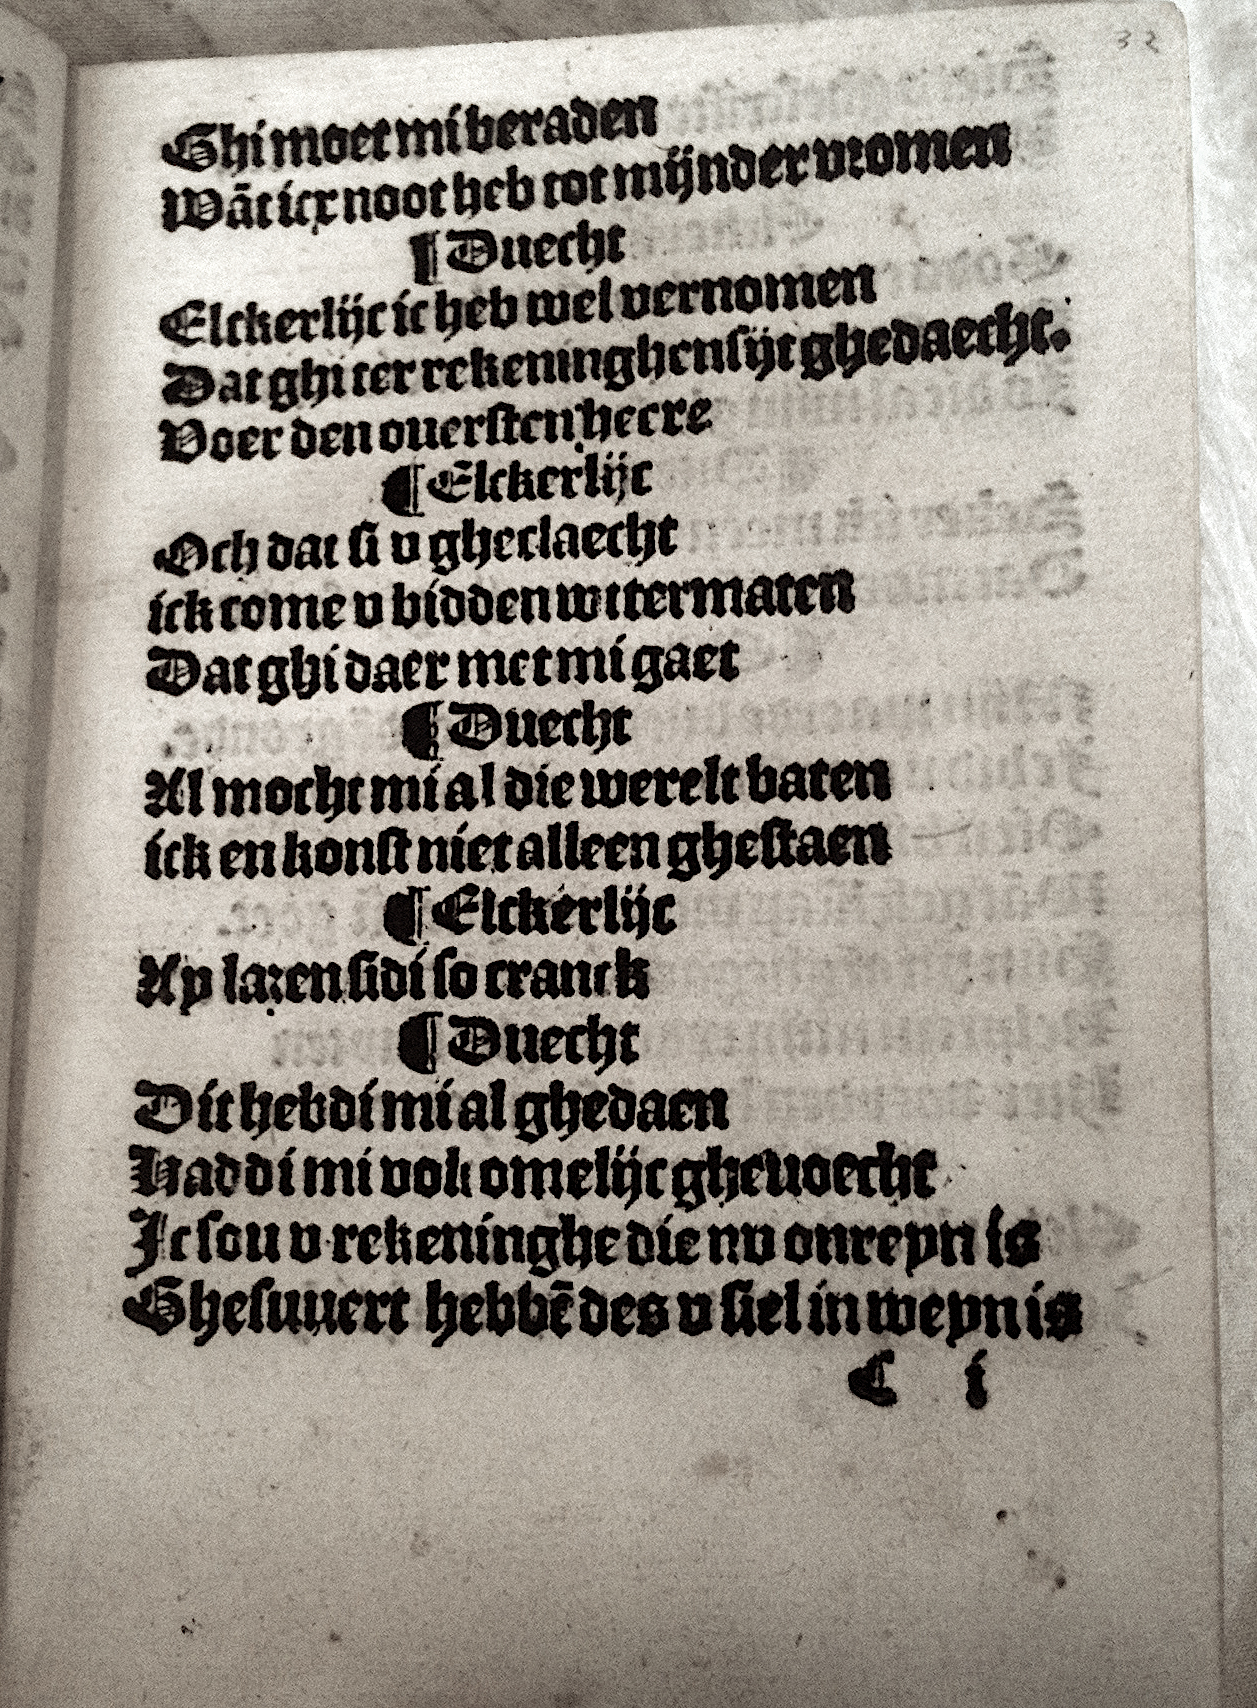 32
Ghi moet mi beraden
Wāt icx noot heb tot mijnder vromen
¶ Duecht
Elckerlijc ic heb wel vernomen
Dat ghi ter rekeninghen sijt ghedaecht.
Voer den ouersten heere
¶ Elckerlijc
Och dat si v gheclaecht
ick come v bidden wtermaten
Dat ghi daer met mi gaet
¶ Duecht
Al mocht mi al die werelt baten
ick en konst niet alleen ghestaen
¶ Elckerlijc
Ay lazen sidi so cranck
¶ Duecht
Dit hebdi mi al ghedaen
Haddi mi volkomelijc gheuoecht
Ic sou v rekeninghe die nv onreyn is
Ghesuuert hebbē des v siel in weyn is
C i